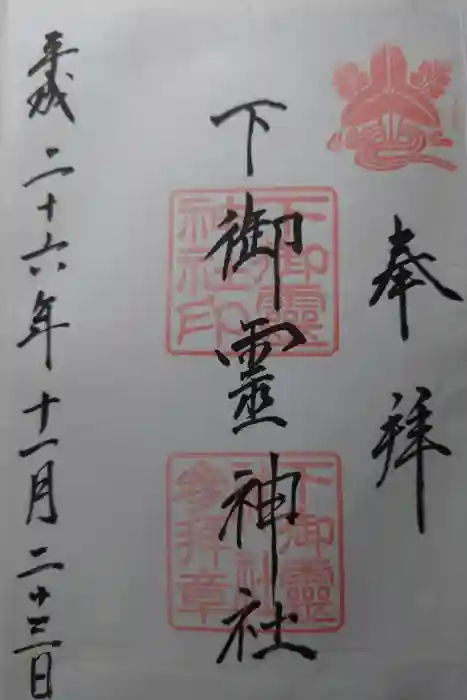 奉拝
下御霊神社
平成二十六年十一月二十三日
下御靈神社印
下御靈神社参拝章